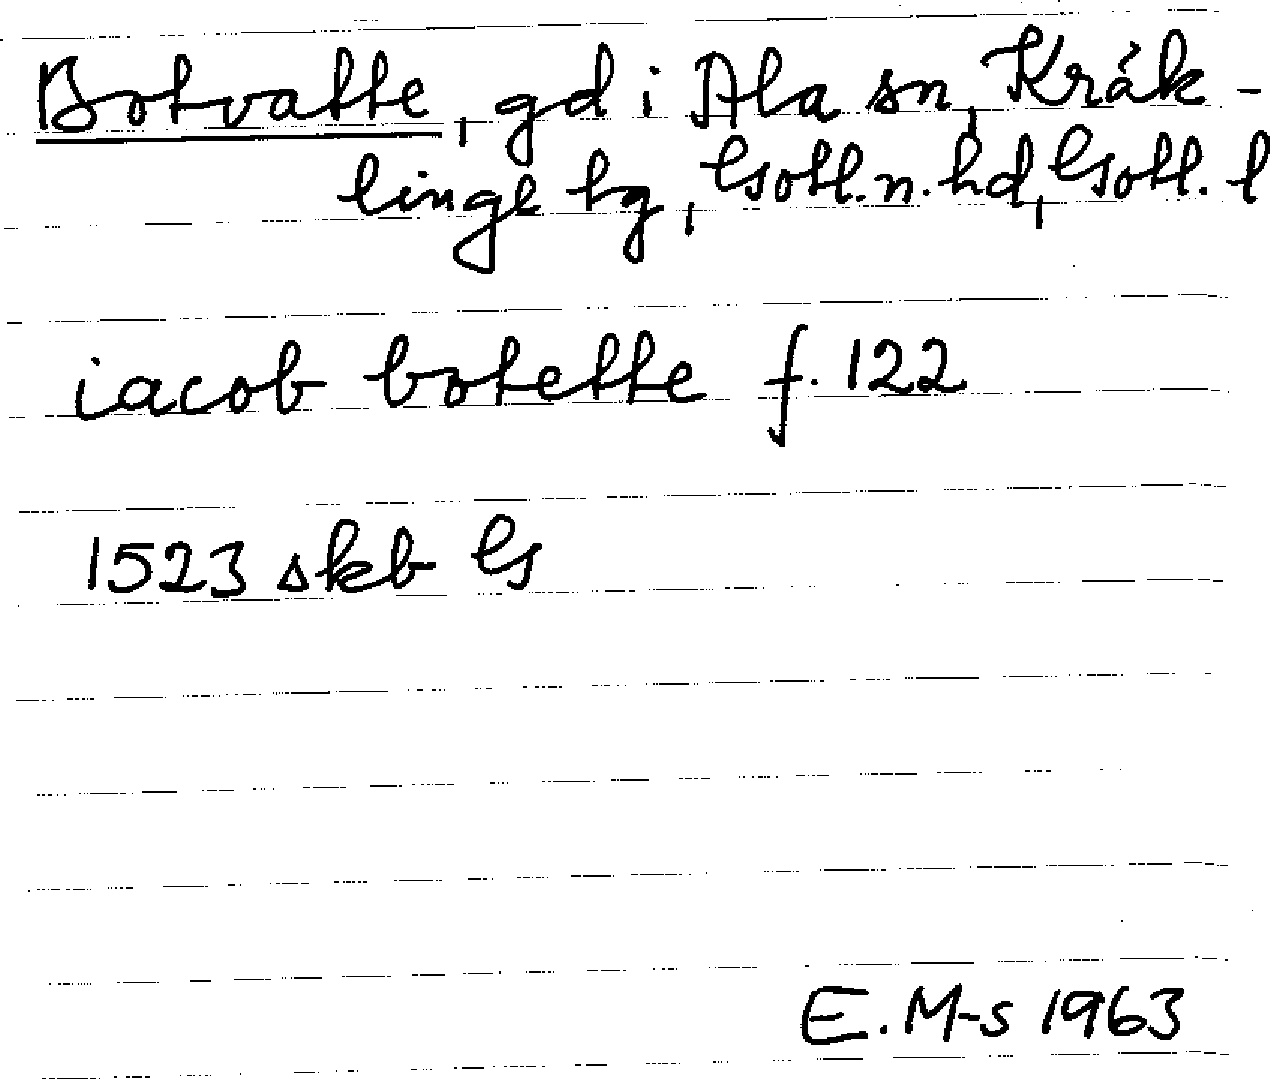 Botvatte, gd i Ala sn, Kräk-
linge tg, Gotl. n. hd, Gotl. l
iacob botette f. 122
1523 skb G
E. M-s 1963